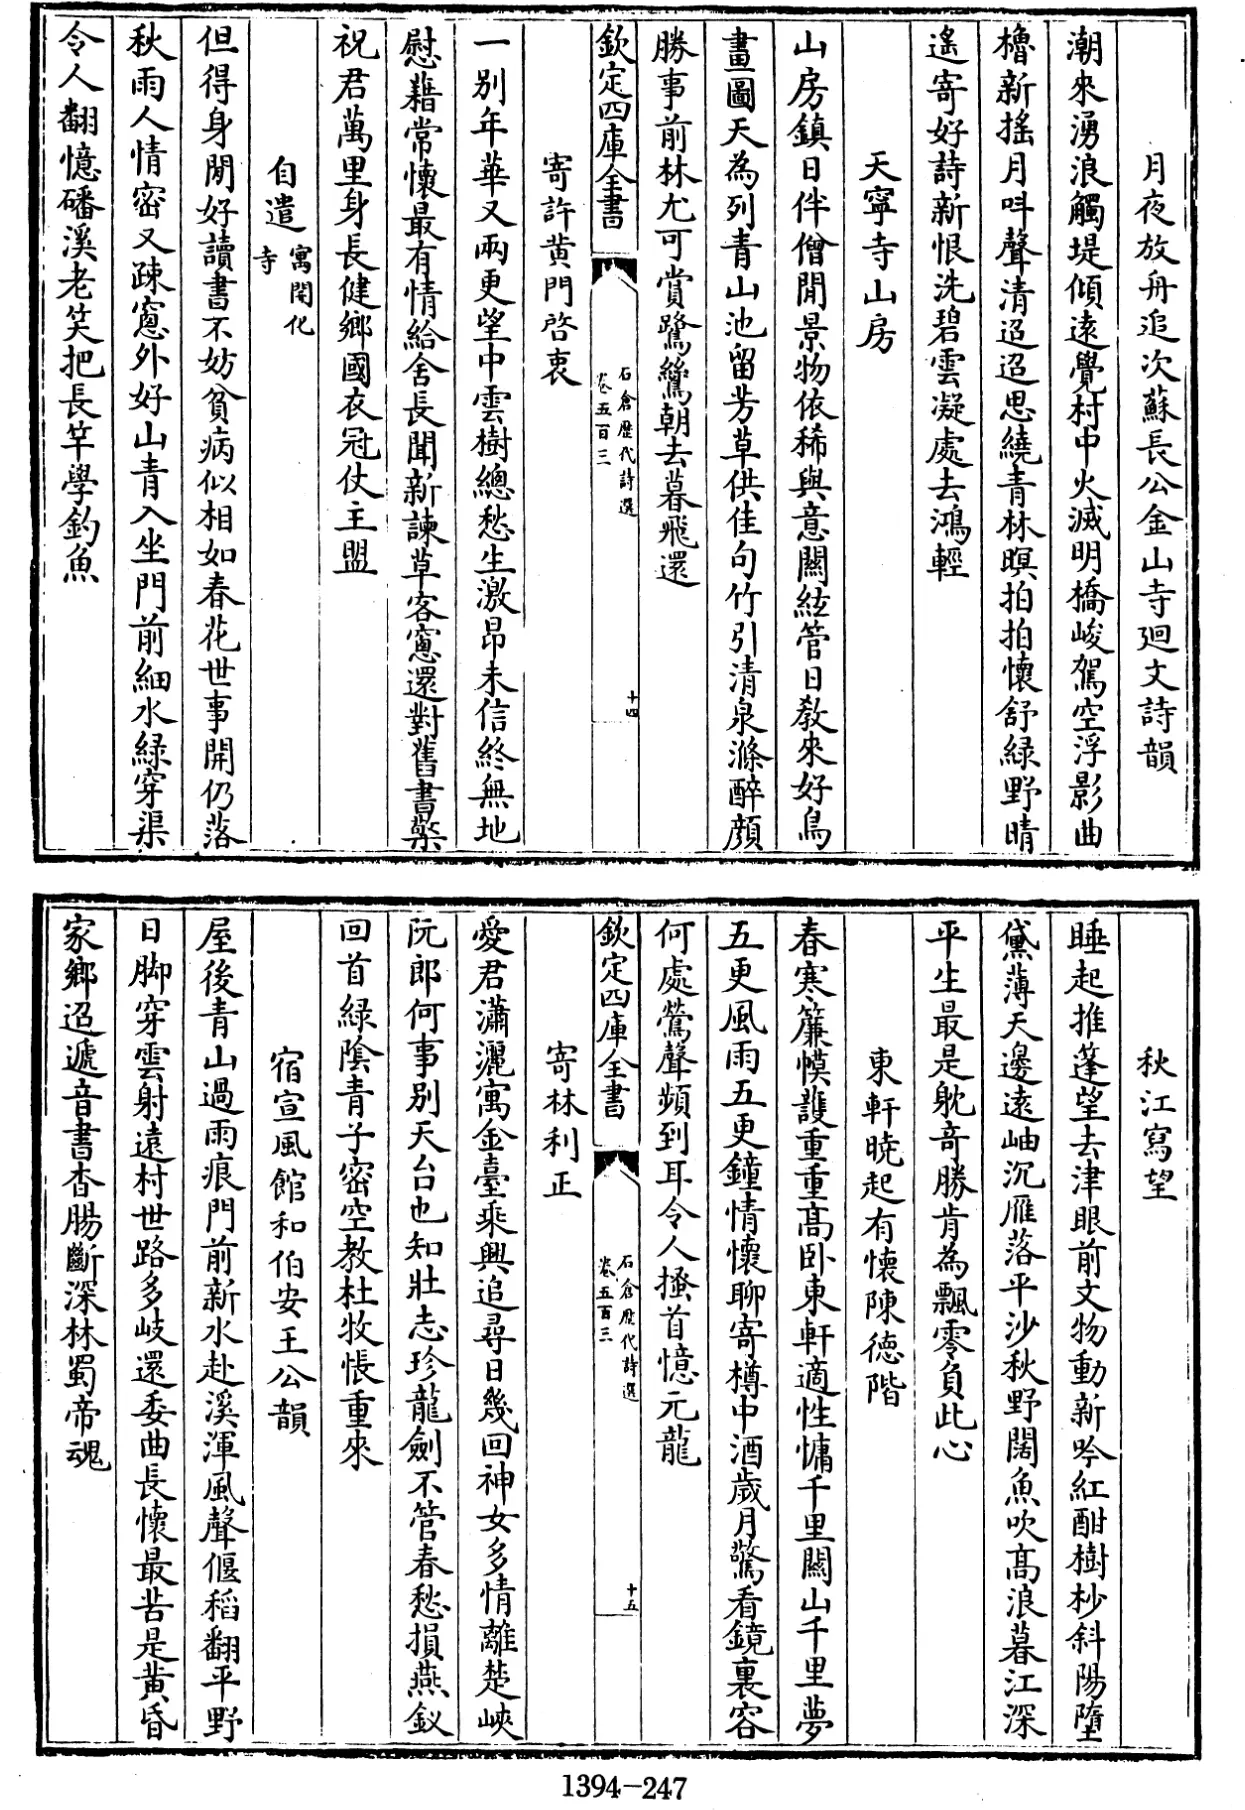 月夜放舟追次蘇長公金山寺廻文詩韻
潮來湧浪觸堤傾遠覺村中火滅明橋峻駕空浮影曲
櫓新搖月呌聲清迢迢思繞青林暝拍拍懷舒緑野晴
遙寄好詩新恨洗碧雲凝處去鴻輕
天寧寺山房
山房鎮日伴僧閒景物依稀與意關絃管日教來好鳥
畫圖天為列青山池留芳草供佳句竹引清泉滌醉顔
勝事前林尤可賞鷺鷥朝去暮飛還
欽定四庫全書
石倉歴代詩選
卷五百三
十四
寄許黄門啓衷
一别年華又兩更望中雲樹總愁生激昂未信終無地
慰藉常懷最有情給舍長聞新諫草客窻還對舊書檠
祝君萬里身長健鄉國衣冠仗主盟
自遣寓開化
寺
但得身閒好讀書不妨貧病似相如春花世事開仍落
秋雨人情密又疎窻外好山青入坐門前細水緑穿渠
令人翻憶磻溪老笑把長竿學釣魚
秋江寫望
睡起推篷望去津眼前文物動新吟紅酣樹杪斜陽墮
黛薄天邊遠岫沉雁落平沙秋野闊魚吹髙浪暮江深
平生最是躭奇勝肯為飄零負此心
東軒曉起有懷陳德階
春寒簾幙䕶重重髙卧東軒適性慵千里關山千里夢
五更風雨五更鐘情懷聊寄樽中酒歲月驚看鏡裏容
何處鶯聲頻到耳令人搔首憶元龍
欽定四庫全書
石倉歴代詩選
卷五百三
十五
寄林利正
愛君瀟灑寓金臺乘興追尋日幾回神女多情離楚峽
阮郎何事别天台也知壯志珍龍劍不管春愁損燕釵
回首緑隂青子密空教杜牧悵重來
宿宣風館和伯安王公韻
屋後青山過雨痕門前新水赴溪渾風聲偃稻翻平野
日脚穿雲射遠村世路多岐還委曲長懷最苦是黄昏
家鄉迢遞音書杳腸斷深林蜀帝魂
1394-247